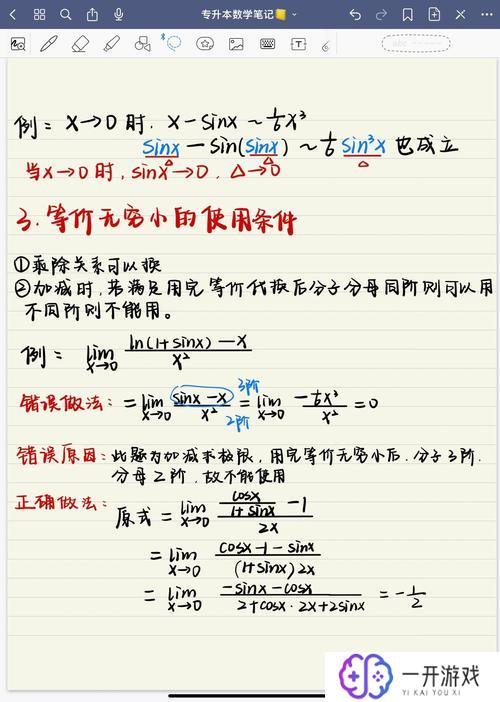 专升本数学笔记📒
例: x→0 时. x-sinx ~ 1/6 x³
sinx - sin(sinx) ~ 1/6 sin³x 也成立
△ △ △
当x→0时, sinx→0, △→0
3. 等价无穷小的使用条件
①乘除关系可以换
②加减时,若满足用完等价代换后分子分母同阶则可以用
不同阶则不能用。
例: lim x→0 (ln(1+sinx) - x)/x²
错误做法: = lim x→0 (sinx - x)/x² = lim x→0 (-1/6 x³)/x² = 0
3阶
2阶
错误原因: 此题为加减求极限, 用完等价无穷小后. 分子3阶.
分母2阶. 故不能使用
正确做法: 原式 = lim x→0 (cosx/(1+sinx) - 1)/2x
= lim x→0 (cosx - 1 - sinx)/((1+sinx)2x)
= lim x→0 (-sinx - cosx)/(2+cosx·2x+2sinx) = -1/2
一开游戏
YI KAI YOU XI